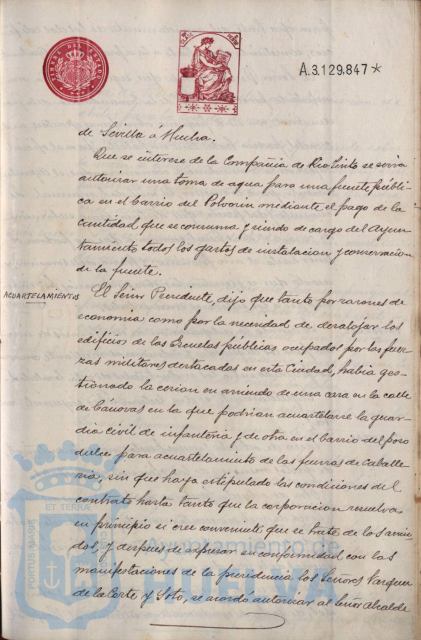 A.3.129.847*
de Sevilla á Huelva.
Que se interese de la Compañia de Rio Tinto se sirva
autorizar una toma de agua para una fuente públi-
ca en el barrio del Polvorin mediante el pago de la
cantidad que se consuma y siendo de cargo del Ayun-
tamiento todos los gastos de instalacion y conservacion
de la fuente.
ACUARTELAMIENTOS
El Señor Presidente, dijo que tanto por razones de
economia como por la necesidad de desalojar los
edificios de las Escuelas públicas ocupados por las fuer-
zas militares destacadas en esta Ciudad, habia ges-
tionado la cesion en arriendo de una casa en la calle
de Cánovas en la que podrian acuartelarse la guar-
dia civil de infanteria, y de otra en el barrio del pozo
dulce para acuartelamiento de las fuerzas de caballe-
ria, sin que haya estipulado las condiciones del
contrato hasta tanto que la corporacion resuelva
en principio si cree conveniente que se trate de los arrien-
dos, y despues de expresar su conformidad con las
manifestaciones de la presidencia los Señores Vazquez
de la Corte y Soto, se acordó autorizar al Señor Alcalde
ET TERRA
PORTUS MARIS
Ayuntamiento de
HUELVA